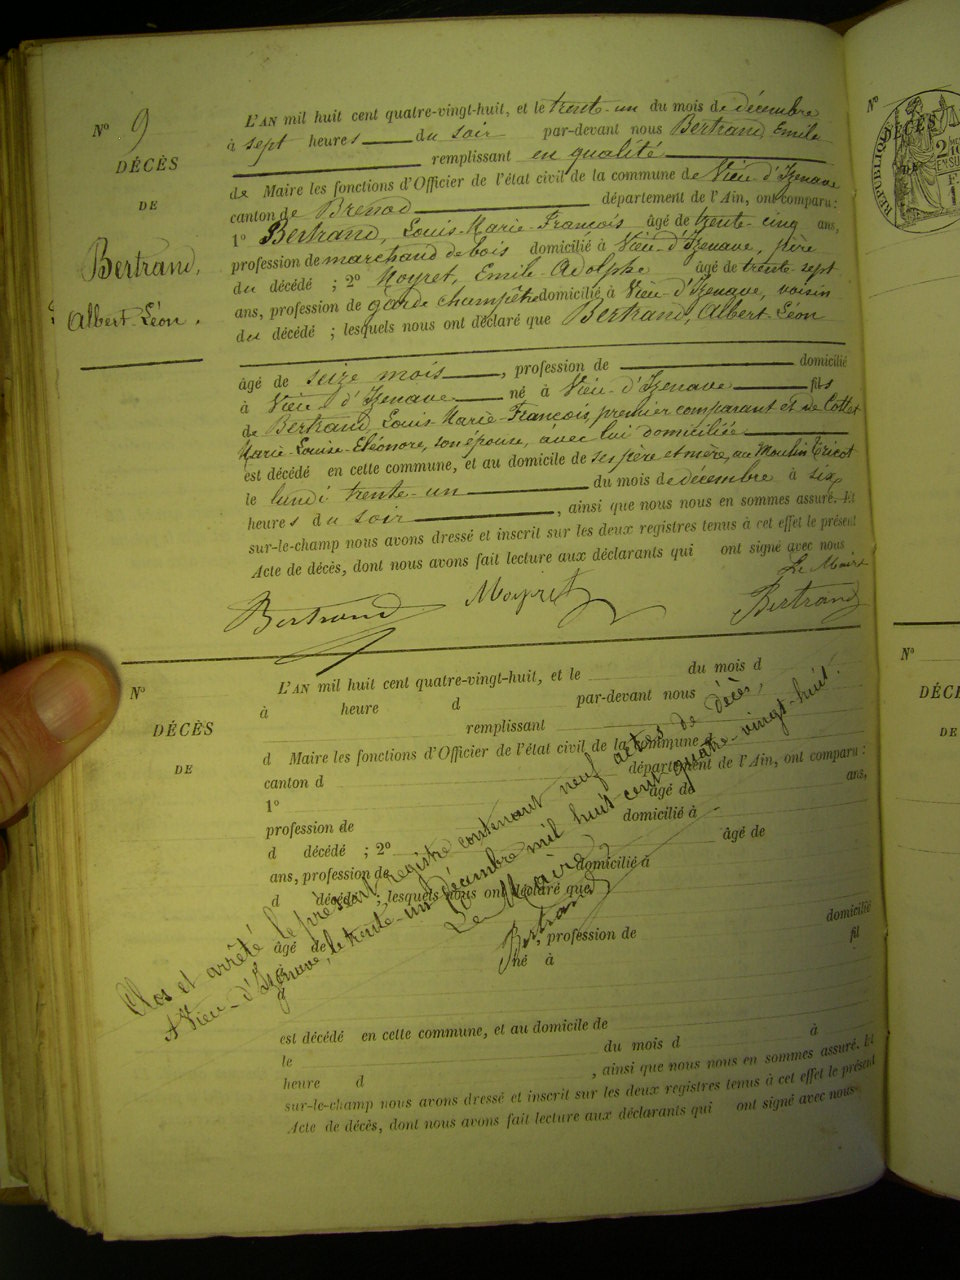 N° 9
DÉCÈS
DE
Bertrand,
Albert-Léon.
L'AN mil huit cent quatre-vingt-huit, et le trente-un du mois de décembre
à sept heures du soir par-devant nous Bertrand Emile
remplissant en qualité
de Maire les fonctions d'Officier de l'état civil de la commune de Vieu-d'Izenave
canton de Brenod département de l'Ain, ont comparu :
1° Bertrand, Louis-Marie-François âgé de trente-cinq ans,
profession de marchand de bois domicilié à Vieu-d'Izenave, père
du décédé ; 2° Moyret, Emile-Adolphe âgé de trente-sept
ans, profession de garde champêtre domicilié à Vieu-d'Izenave, voisin
du décédé ; lesquels nous ont déclaré que Bertrand, Albert-Léon
âgé de seize mois, profession de domicilié
à Vieu-d'Izenave né à Vieu-d'Izenave fils
de Bertrand, Louis-Marie-François, premier comparant et de Cottet
Marie-Louise-Eléonore, son épouse, avec lui domiciliée
est décédé en cette commune, et au domicile de ses père et mère, au Moulin Tricot
le lundi trente-un du mois de décembre à six
heures du soir, ainsi que nous nous en sommes assuré. Et
sur-le-champ nous avons dressé et inscrit sur les deux registres tenus à cet effet le présent
Acte de décès, dont nous avons fait lecture aux déclarants qui ont signé avec nous
Le Maire
Bertrand Moyret Bertrand
N°
DÉCÈS
DE
L'AN mil huit cent quatre-vingt-huit, et le du mois d
à heure d par-devant nous
remplissant
d Maire les fonctions d'Officier de l'état civil de la commune d
canton d département de l'Ain, ont comparu :
1° âgé de ans,
profession de domicilié à
d décédé ; 2° âgé de
ans, profession de domicilié à
d décédé ; lesquels nous ont déclaré que
âgé de , profession de domicilié
à né à fil
d
est décédé en cette commune, et au domicile de
le du mois d à
heure d , ainsi que nous nous en sommes assuré. Et
sur-le-champ nous avons dressé et inscrit sur les deux registres tenus à cet effet le présent
Acte de décès, dont nous avons fait lecture aux déclarants qui ont signé avec nous
Clos et arrêté le présent registre contenant neuf actes de décès,
à Vieu-d'Izenave, le trente-un décembre mil huit cent quatre-vingt-huit.
Le Maire,
Bertrand
N°
DÉCÈS
DE
RÉPUBLIQUE
N°
DÉCÈ
DE